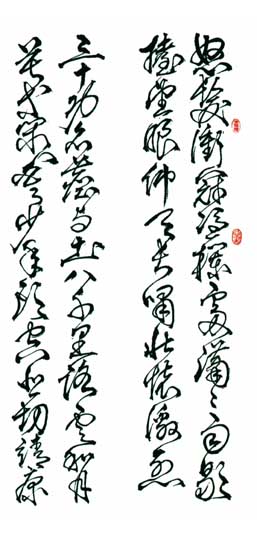 怒髮衝冠憑欄處瀟々雨歇
擡望眼仰天長嘯壯懷激烈
三十功名塵與土八千里路雲和月
莫等閑白了少年頭空悲切靖康